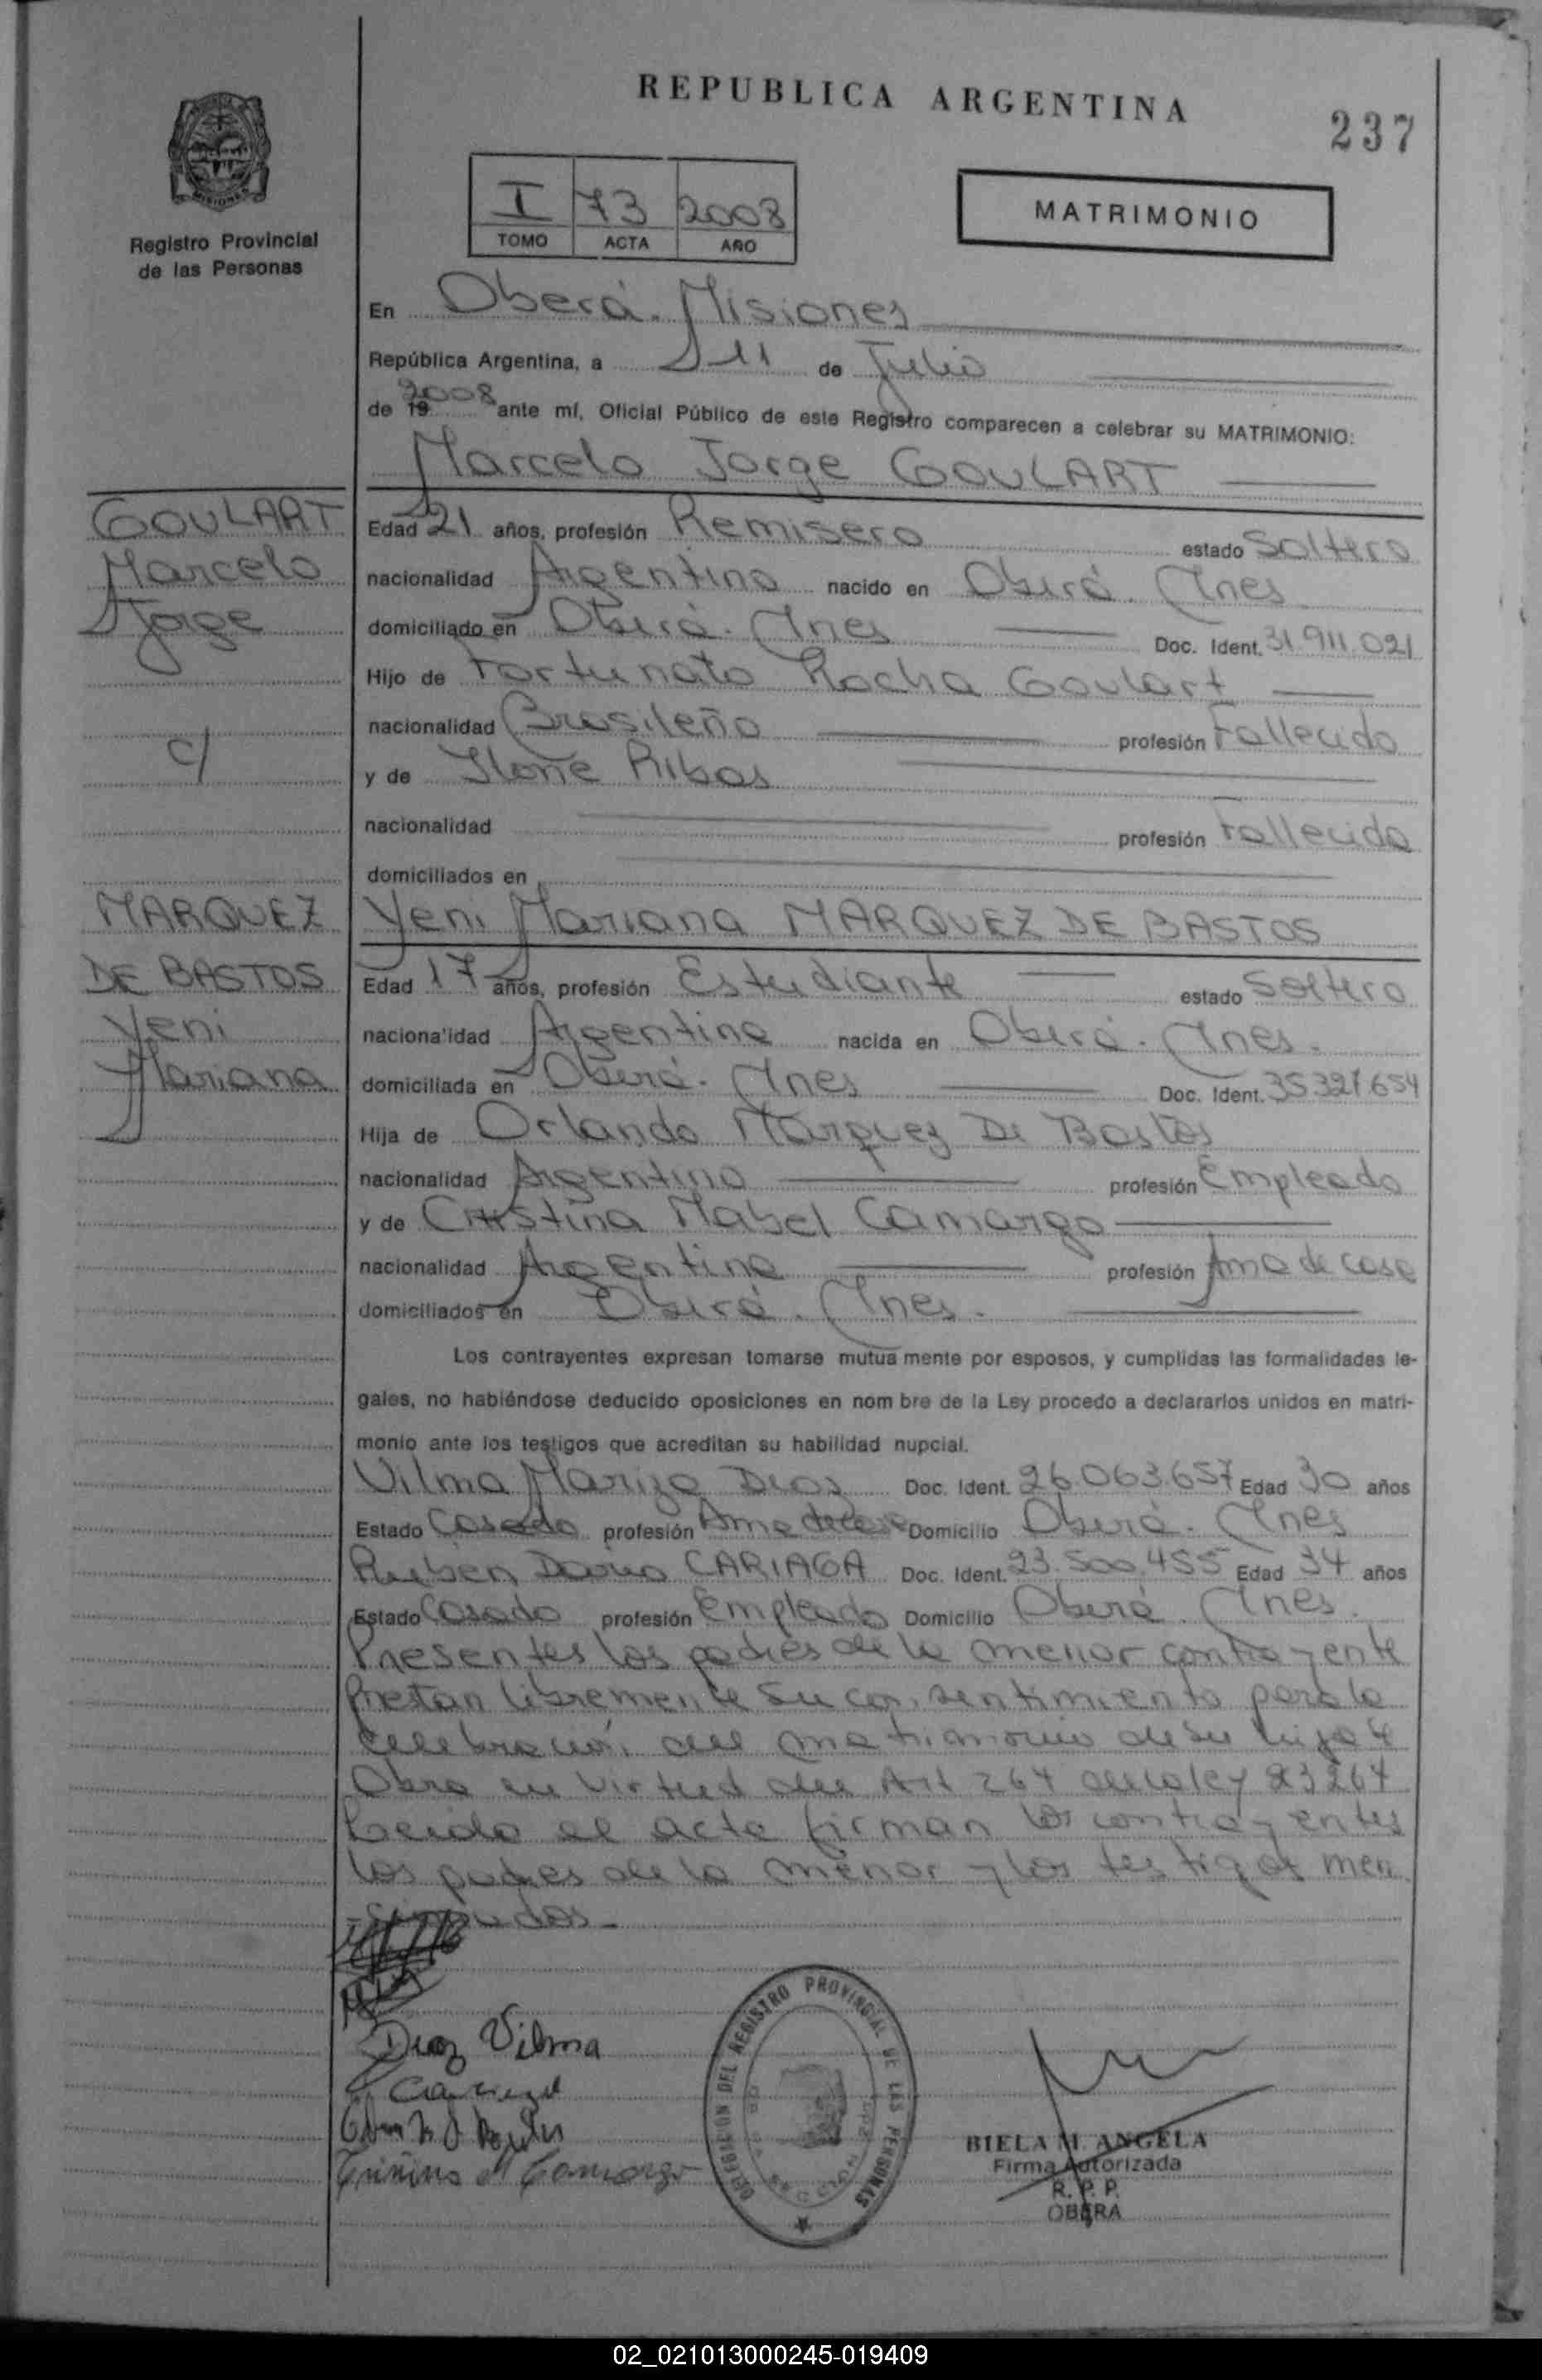 REPUBLICA ARGENTINA
237
I 73 2008
TOMO ACTA AÑO
MATRIMONIO
MISIONES
Registro Provincial
de las Personas
En Oberá. Misiones
República Argentina, a 11 de Julio
de 19 2008 ante mí, Oficial Público de este Registro comparecen a celebrar su MATRIMONIO:
Marcelo Jorge GOULART
GOULART
Marcelo
Jorge
c/
MARQUEZ
DE BASTOS
Yeni
Mariana
Edad 21 años, profesión Remisero estado Soltero
nacionalidad Argentino nacido en Oberá. Mnes
domiciliado en Oberá. Mnes Doc. Ident. 31.911.021
Hijo de Fortunato Rocha Goulart
nacionalidad Brasileño profesión Fallecido
y de Ribas
nacionalidad profesión Fallecida
domiciliados en
Yeni Mariana MARQUEZ DE BASTOS
Edad 17 años, profesión Estudiante estado Soltera
naciona'idad Argentina nacida en Oberá. Mnes.
domiciliada en Oberá. Mnes Doc. Ident. 35.327.654
Hija de Orlando Marquez De Bastos
nacionalidad Argentino profesión Empleado
y de Cristina Mabel Camargo
nacionalidad Argentina profesión Ama de casa
domiciliados en Oberá. Mnes.
Los contrayentes expresan tomarse mutua mente por esposos, y cumplidas las formalidades le-
gales, no habiéndose deducido oposiciones en nom bre de la Ley procedo a declararlos unidos en matri-
monio ante los testigos que acreditan su habilidad nupcial.
Vilma Mariza Diaz Doc. Ident. 26.063.657 Edad 30 años
Estado Casada profesión Ama de casa Domicilio Oberá. Mnes
Ruben Dario CARIAGA Doc. Ident. 23.500.455 Edad 34 años
Estado Casado profesión Empleado Domicilio Oberá. Mnes.
Presentes los padres de la menor contrayente
Prestan libremente su consentimiento para la
celebración del matrimonio de su hija
Obra en virtud del Art 264 de la ley 23264
Leida el acta firman los contrayentes
los padres de la menor y los testigos men
-cionados.-
Diaz Vilma
Cariaga
Camargo
DELEGACION DEL REGISTRO PROVINCIAL DE LAS PERSONAS
BIELA M. ANGELA
Firma Autorizada
R. P. P.
OBERA
02_021013000245-019409